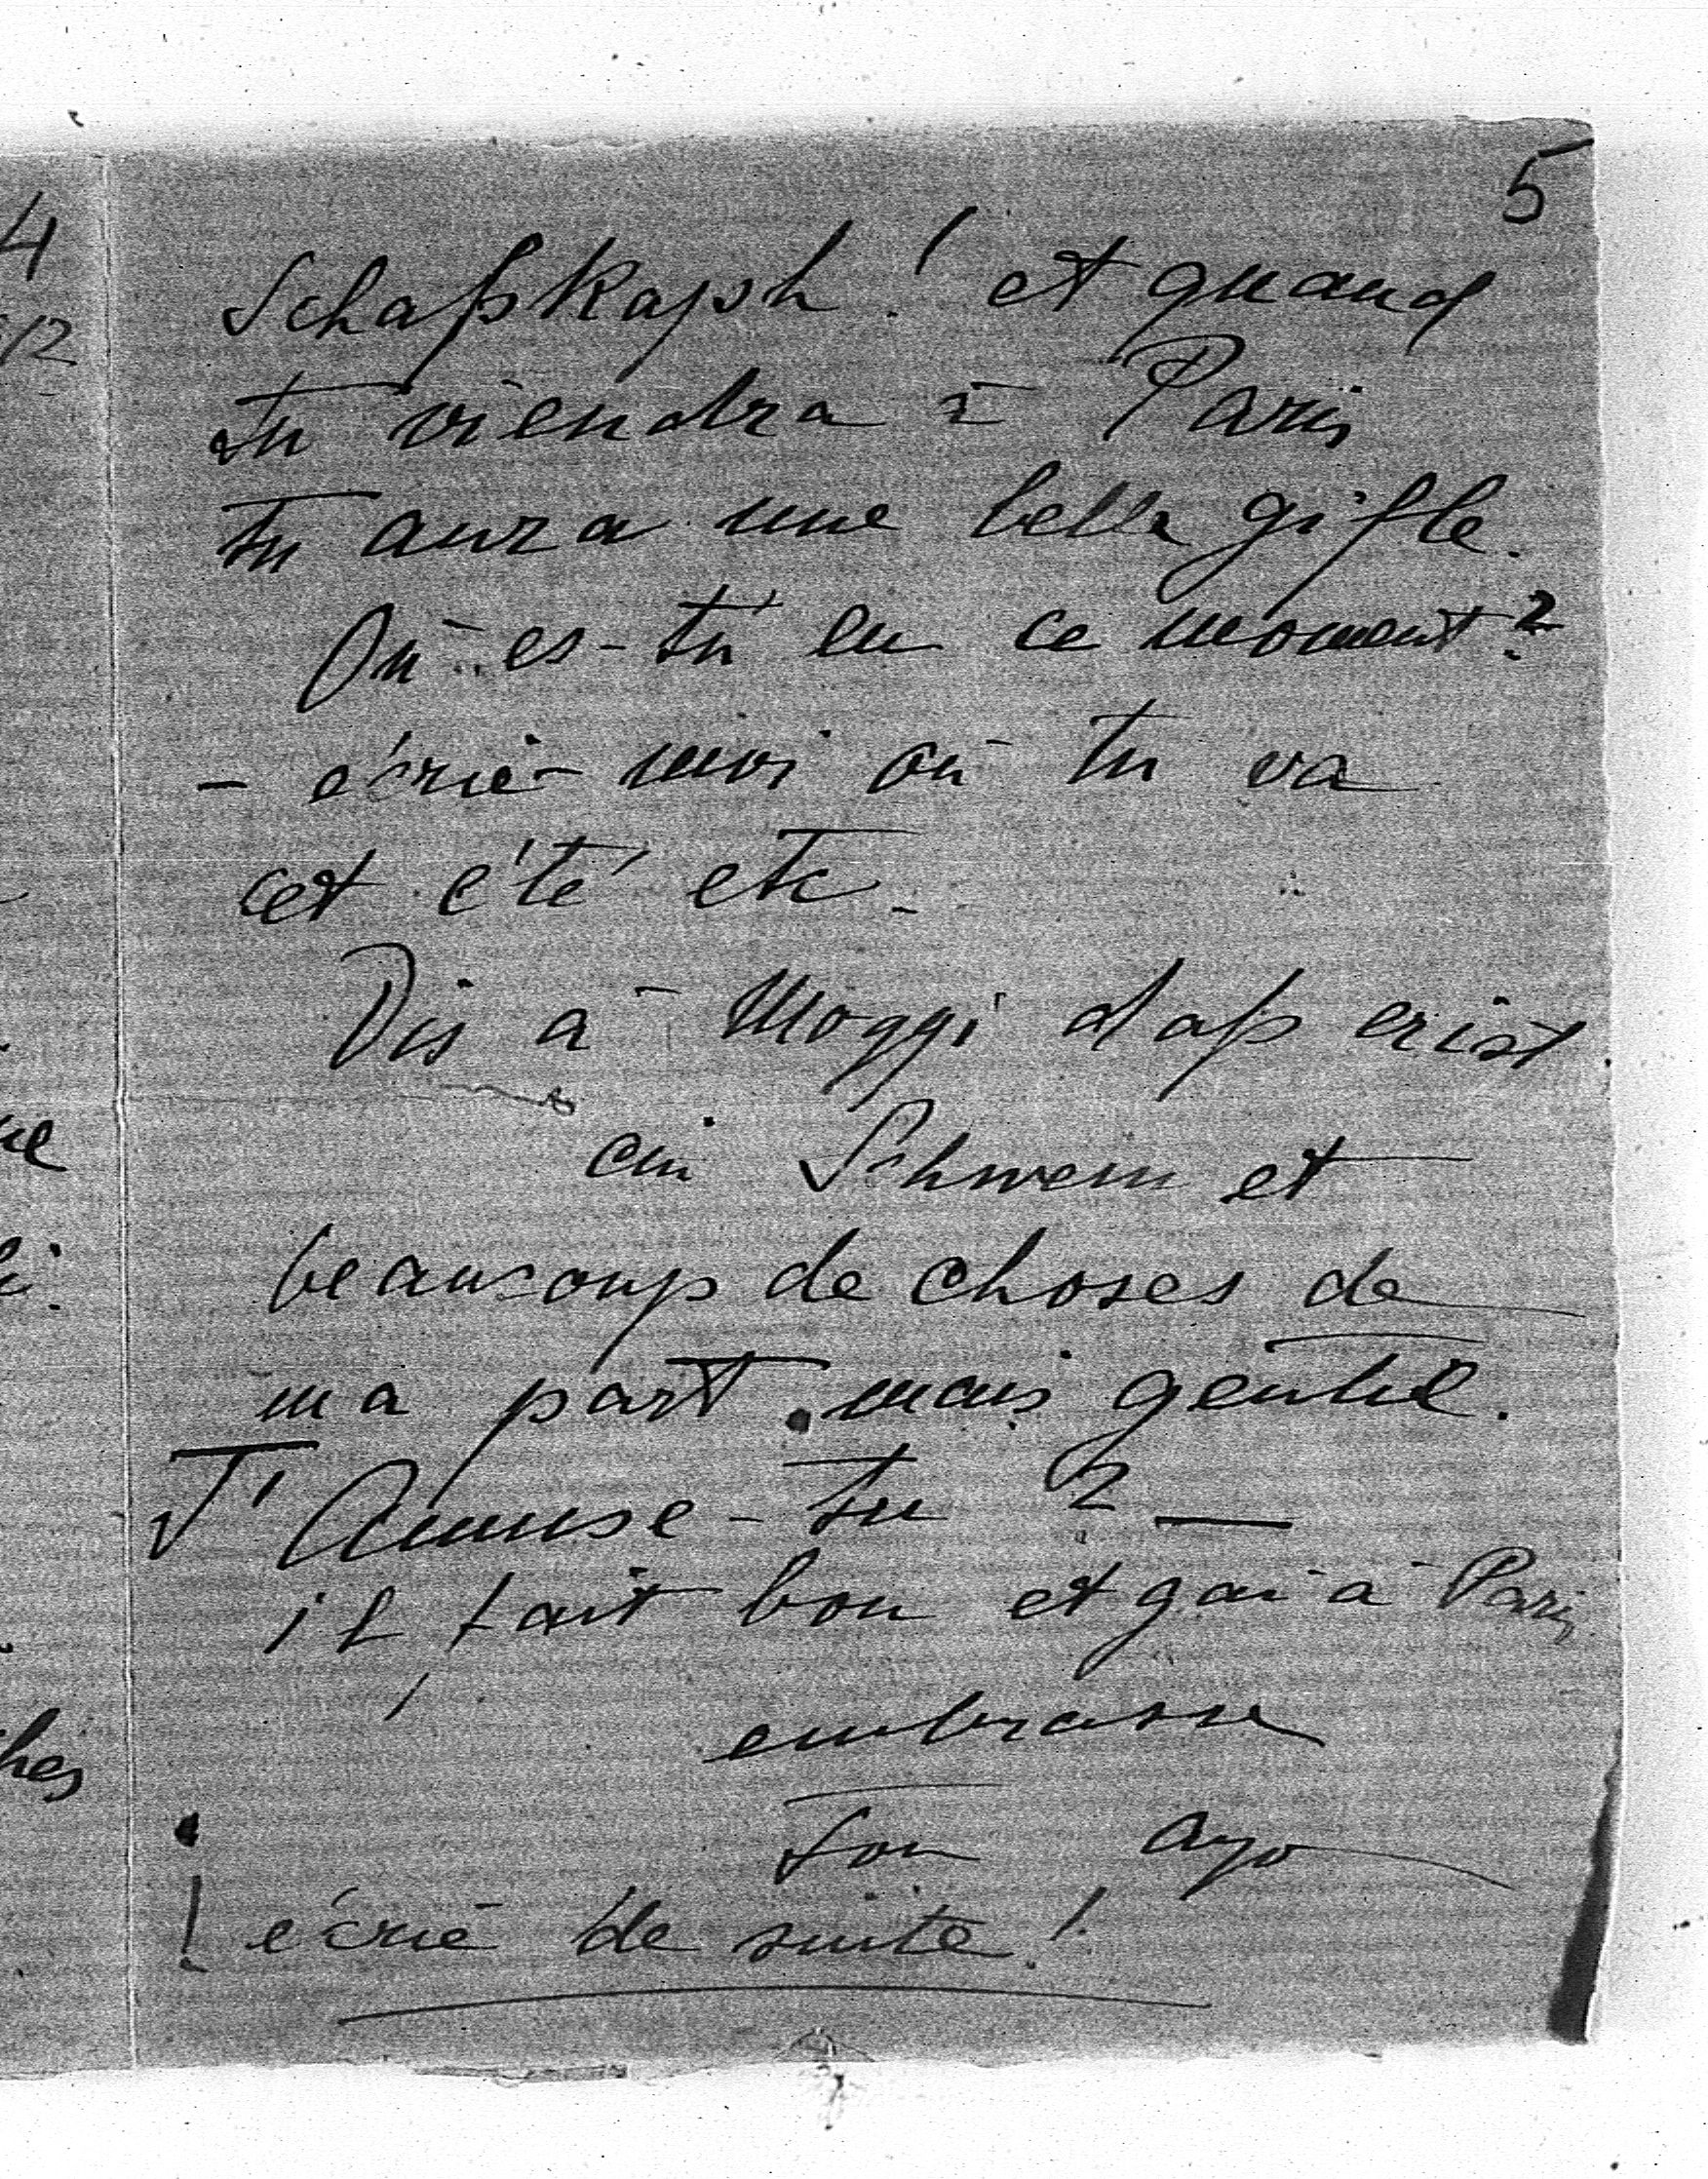 5
Schaßkaph! et quand
tu viendra à Paris
tu aura une belle gifle.
Où es-tu en ce moment?
- écrie-moi où tu va
cet été etc.
Dis à Moggi daß er ist
ein Schwein et
beaucoup de choses de
ma part. mais gentil.
T'Amuse-tu? —
il fait bon et gai à Paris
embrasse
Ton
! écrie de suite!
4